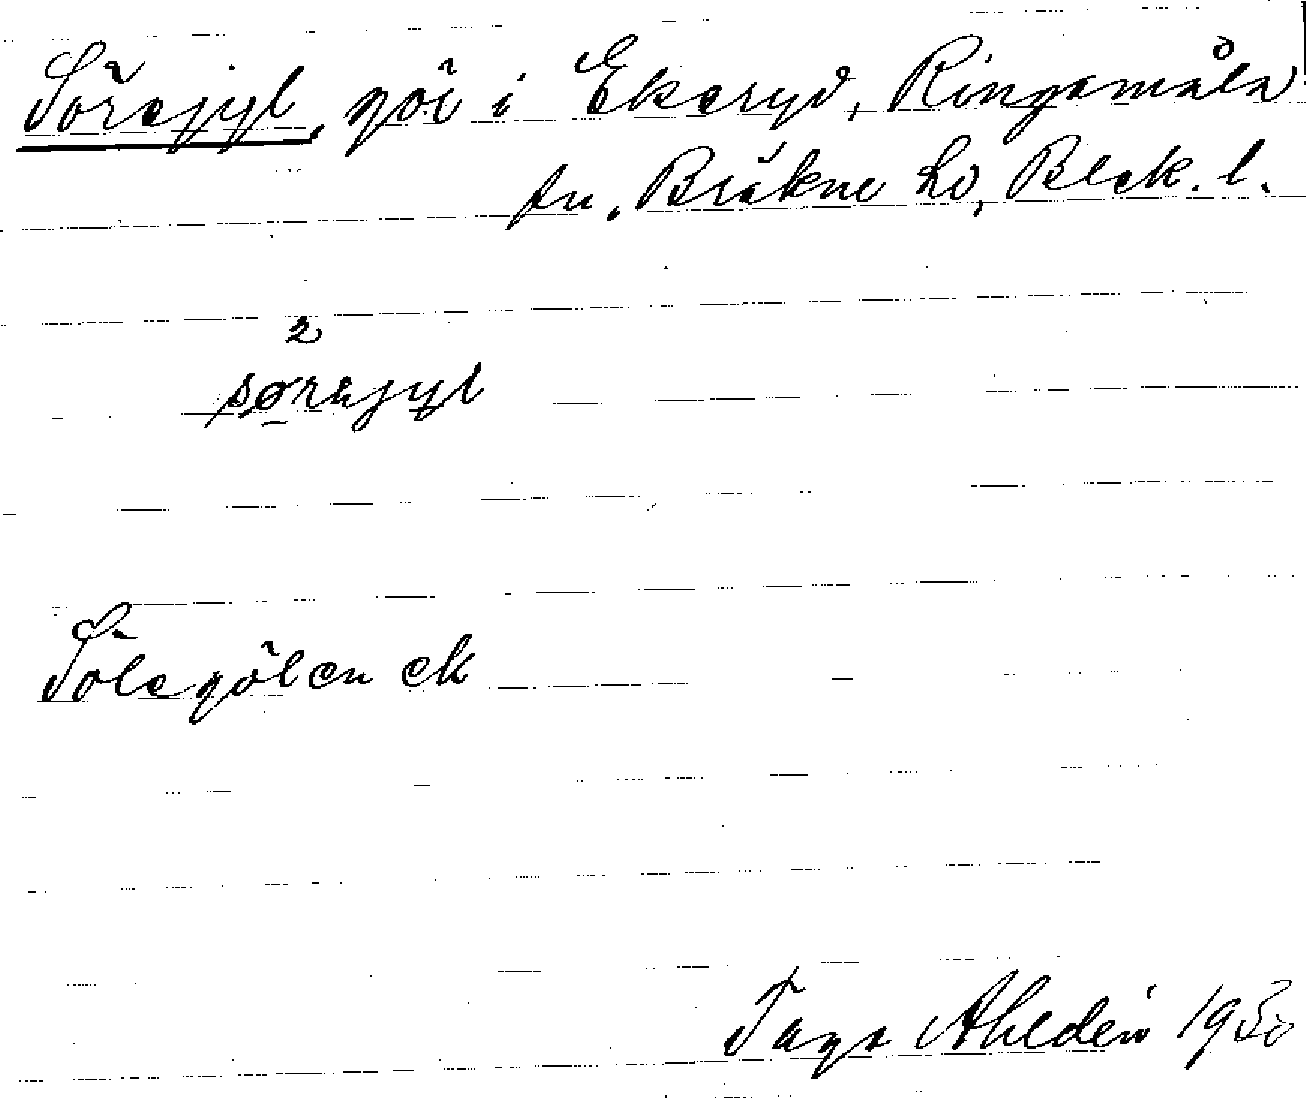 Sörejyl, göl i Ekeryd, Ringamåla
sn. Bräkne hd, Blek. l.
2
sørejyl
Sölegölen ek
Tage Ahldén 1930